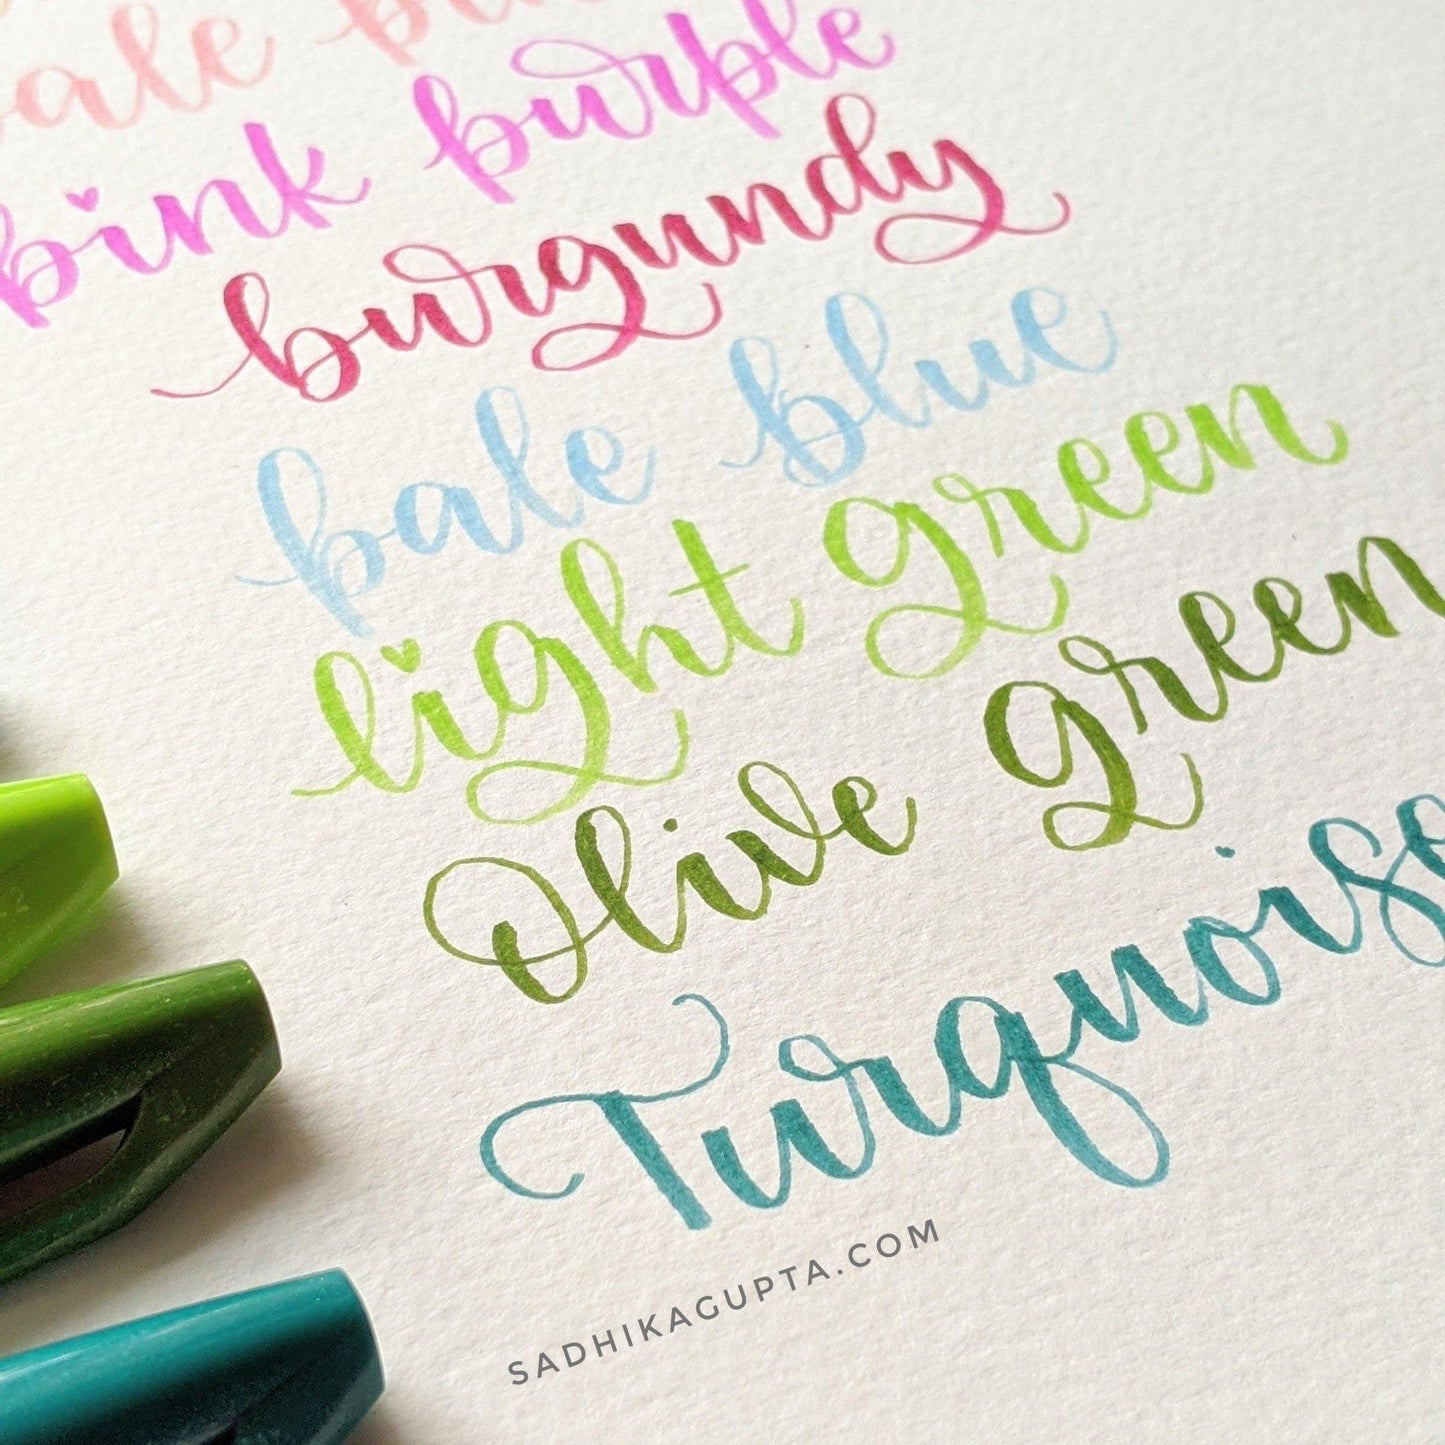 pale pin
pink purple
burgundy
pale blue
light green
Olive green
Turquois
SADHIKAGUPTA.COM